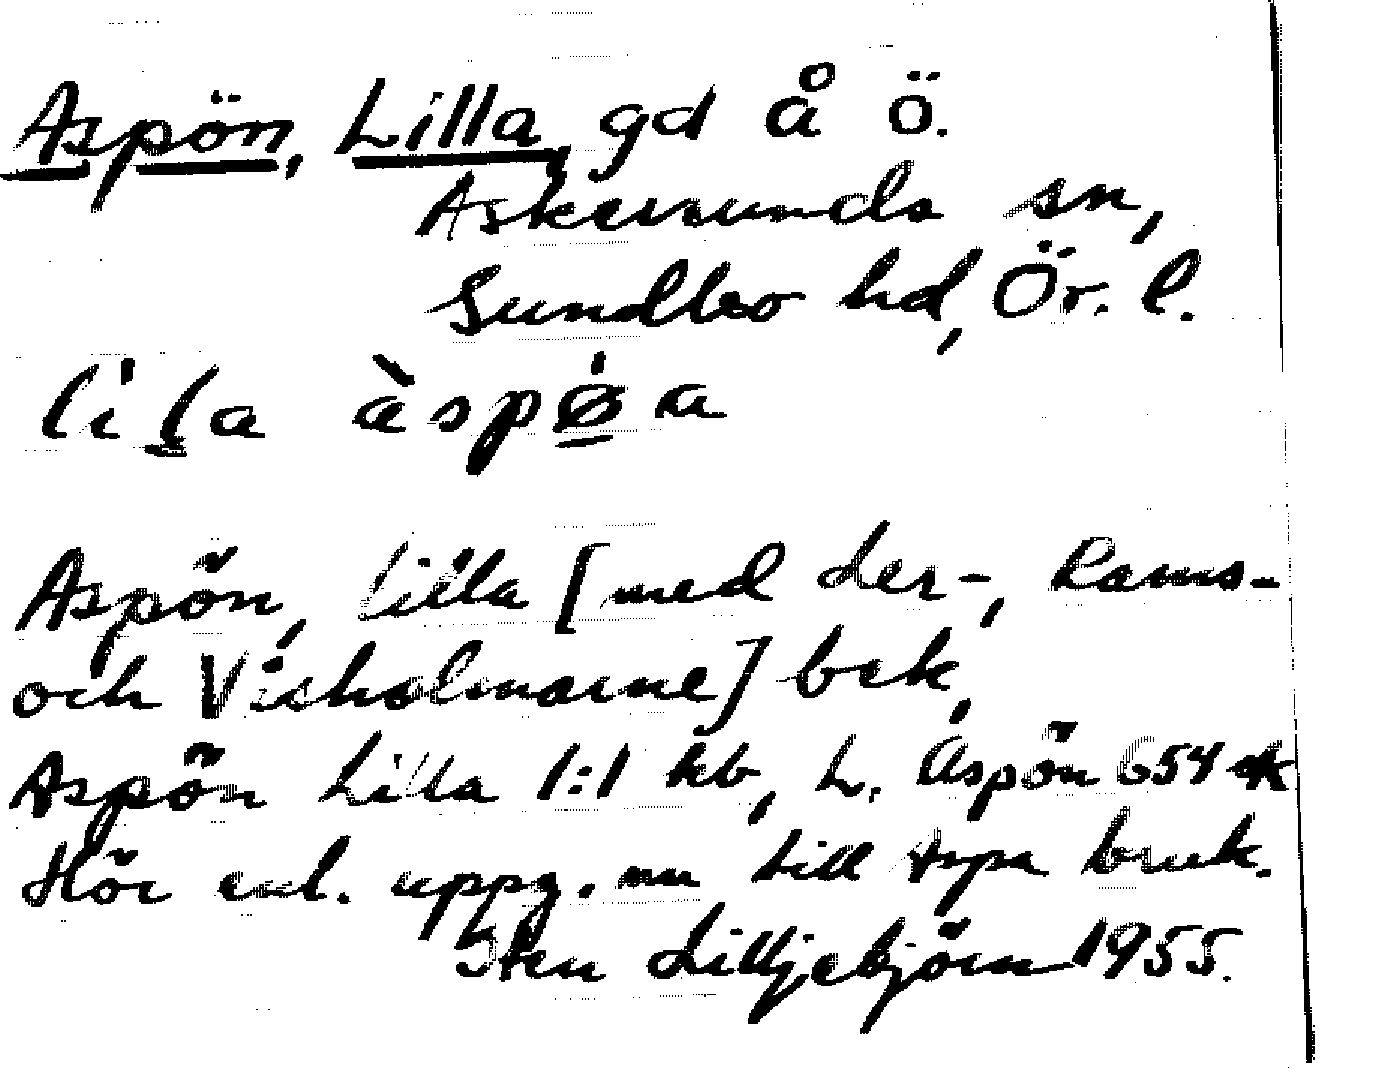 Aspön, Lilla gd å ö.
Askersunds sn,
Sundbo hd, Ör. l.
lila àspøa
Aspön, lilla [med Ler-, Rams-
och Visholmarne] bek,
Aspön Lilla 1:1 hb, L. Aspön 654 ek
Hör enl. uppg. nu till Aspa bruk.
Sten Lilljebjörn 1955.